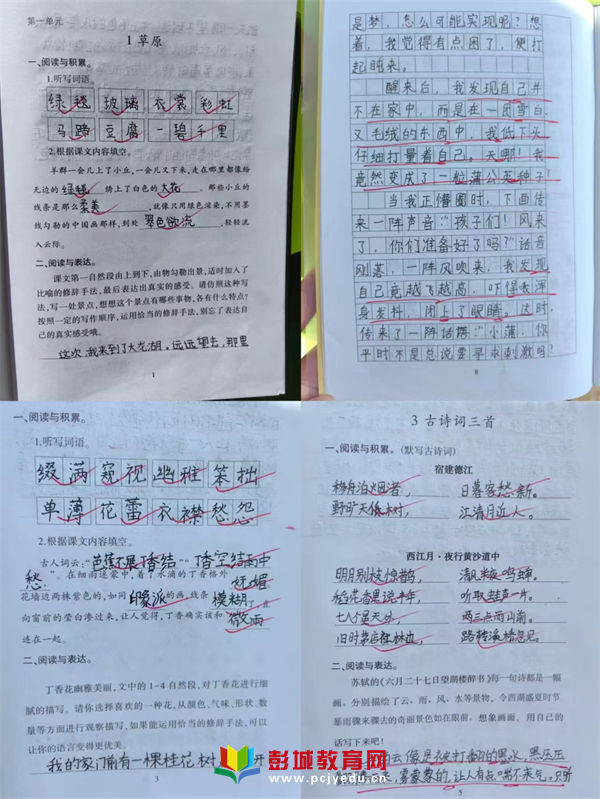 第一单元
1 草原
一、阅读与积累。
1.听写词语。
绿毯 玻璃 衣裳 彩虹
马蹄 豆腐 一碧千里
2.根据课文内容填空。
羊群一会儿上了小丘，一会儿又下来，走在哪里都像给
无边的绿毯绣上了白色的大花。那些小丘的
线条是那么柔美，就像只用绿色渲染，不用墨
线勾勒的中国画那样，到处翠色欲流，轻轻流
入云际。
二、阅读与表达。
课文第一自然段由上到下，由物勾勒出景，适时加入了
比喻的修辞手法，最后表达出真实的感受。请仿照这种写
法，写一处景点，想想这个景点有哪些事物，各有什么特点？
按照一定的写作顺序，运用恰当的修辞手法，别忘了表达自
己的真实感受哦。
这次，我来到了大龙湖。远远望去，那里
1
是梦，怎么可能实现呢？想
着，我觉得有点困了，便打
起瞌来。
醒来后，我发现自己并
不在家中，而是在一团雪白
又毛绒的东西中，我低下头
仔细打量着自己。天哪！我
竟然变成了一粒蒲公英种子！
当我正懵圈时，下面传
来一阵声音：“孩子们！风来
了，你们准备好了吗？”话音
刚落，一阵风吹来，我发现
自己竟越飞越高，吓得我浑
身发抖，闭上了眼睛。这时，
传来了一阵话
：“小蒲，你
平时不是总说要寻求刺激吗？
8
一、阅读与积累。
1.听写词语。
缀满 窥视 幽雅 笨拙
单薄 花蕾 衣襟 愁怨
2.根据课文内容填空。
古人词云：“芭蕉不展丁香结”“丁香空结雨中
愁”。在细雨迷蒙中，着了水滴的丁香格外妩媚
花墙边两株紫色的，如同印象派的画，线条模糊了，直
向窗前的莹白渗过来，让人觉得，丁香确实该和微雨
连在一起。
二、阅读与表达。
丁香花幽雅美丽，文中的1-4自然段，对丁香花进行细
腻的描写。请你选择喜欢的一种花，从颜色、气味、形状、数
量等方面进行观察描写，如果能运用恰当的修辞手法，可以
让你的语言变得更优美。
我的家门前有一棵桂花树
开
3
3 古诗词三首
一、阅读与积累。（默写古诗词）
宿建德江
移舟泊烟渚， 日暮客愁新。
野旷天低树， 江清月近人。
西江月·夜行黄沙道中
明月别枝惊鹊， 清风半夜鸣蝉。
稻花香里说丰年， 听取蛙声一片。
七八个星天外， 两三点雨山前。
旧时茅店社林边， 路转溪桥忽见。
二、阅读与表达。
苏轼的《六月二十七日望湖楼醉书》每一句诗都是一幅
画。分别描绘了云、雨、风、水等景物，令西湖盛夏时节
暴雨骤来骤去的奇丽景色如在眼前。想象画面，用自己的
话写下来吧！
云像是被打翻的黑水，黑压压
雾蒙蒙的，让人有点喘不来气。只听
5
彭城教育网
www.pcjyedu.cn